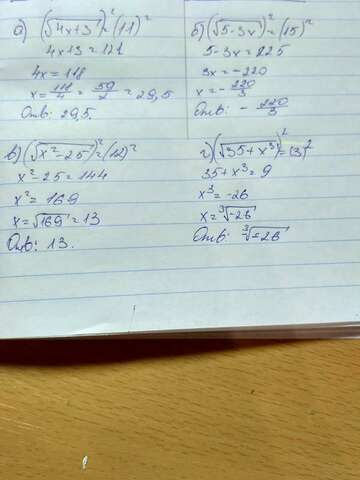 а) (√4x+3)² = (11)²
4x+3 = 121
4x = 118
x = 118/4 = 59/2 = 29,5
Отв: 29,5.
б) (√5-3x)² = (15)²
5-3x = 225
3x = -220
x = - 220/3
Отв: - 220/3
в) (√x²-25)² = (12)²
x²-25 = 144
x² = 169
x = √169 = 13
Отв: 13.
г) (√35+x³)² = (3)²
35+x³ = 9
x³ = -26
x = ³√-26
Отв: ³√-26